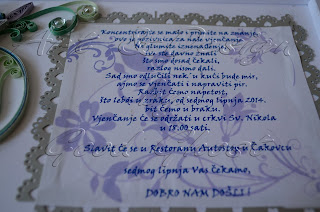 Koncentrirajte se malo i primite na znanje,
ovo je pozivnica za naše vjenčanje.
Ne glumite iznenađenje,
svi ste davno znali
što smo dosad čekali,
razlog nismo dali.
Sad smo odlučili nek' u kući bude mir,
ajmo se vjenčati i napraviti pir.
Razbit Ćemo napetost,
što lebdi u zraku, od sedmog lipnja 2014.
bit Ćemo u braku.
Vjenčanje Će se održati u crkvi Sv. Nikola
u 18.00 sati.
Slavit Će se u Restoranu Autostop u Čakovcu
sedmog lipnja Vas Čekamo,
DOBRO NAM DOŠLI!